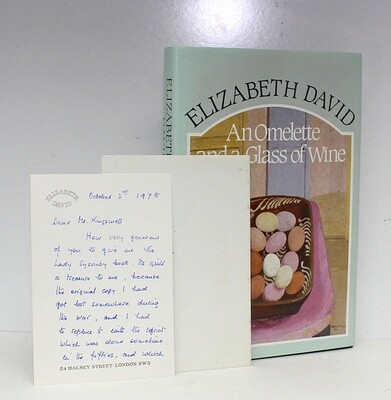 ELIZABETH DAVID
An Omelette
and a Glass of Wine
ELIZABETH
ELIZABETH
DAVID
October 2nd 1978
Dear Mr. Kingswell
How very generous
of you to give me the
Lady Sysonby book. Its quite
a treasure to me, because
the original copy I had
got lost somewhere during
the war, and I had
to replace it with the reprint
which was done sometime
in the fifties, and which
24 HALSEY STREET·LONDON SW3